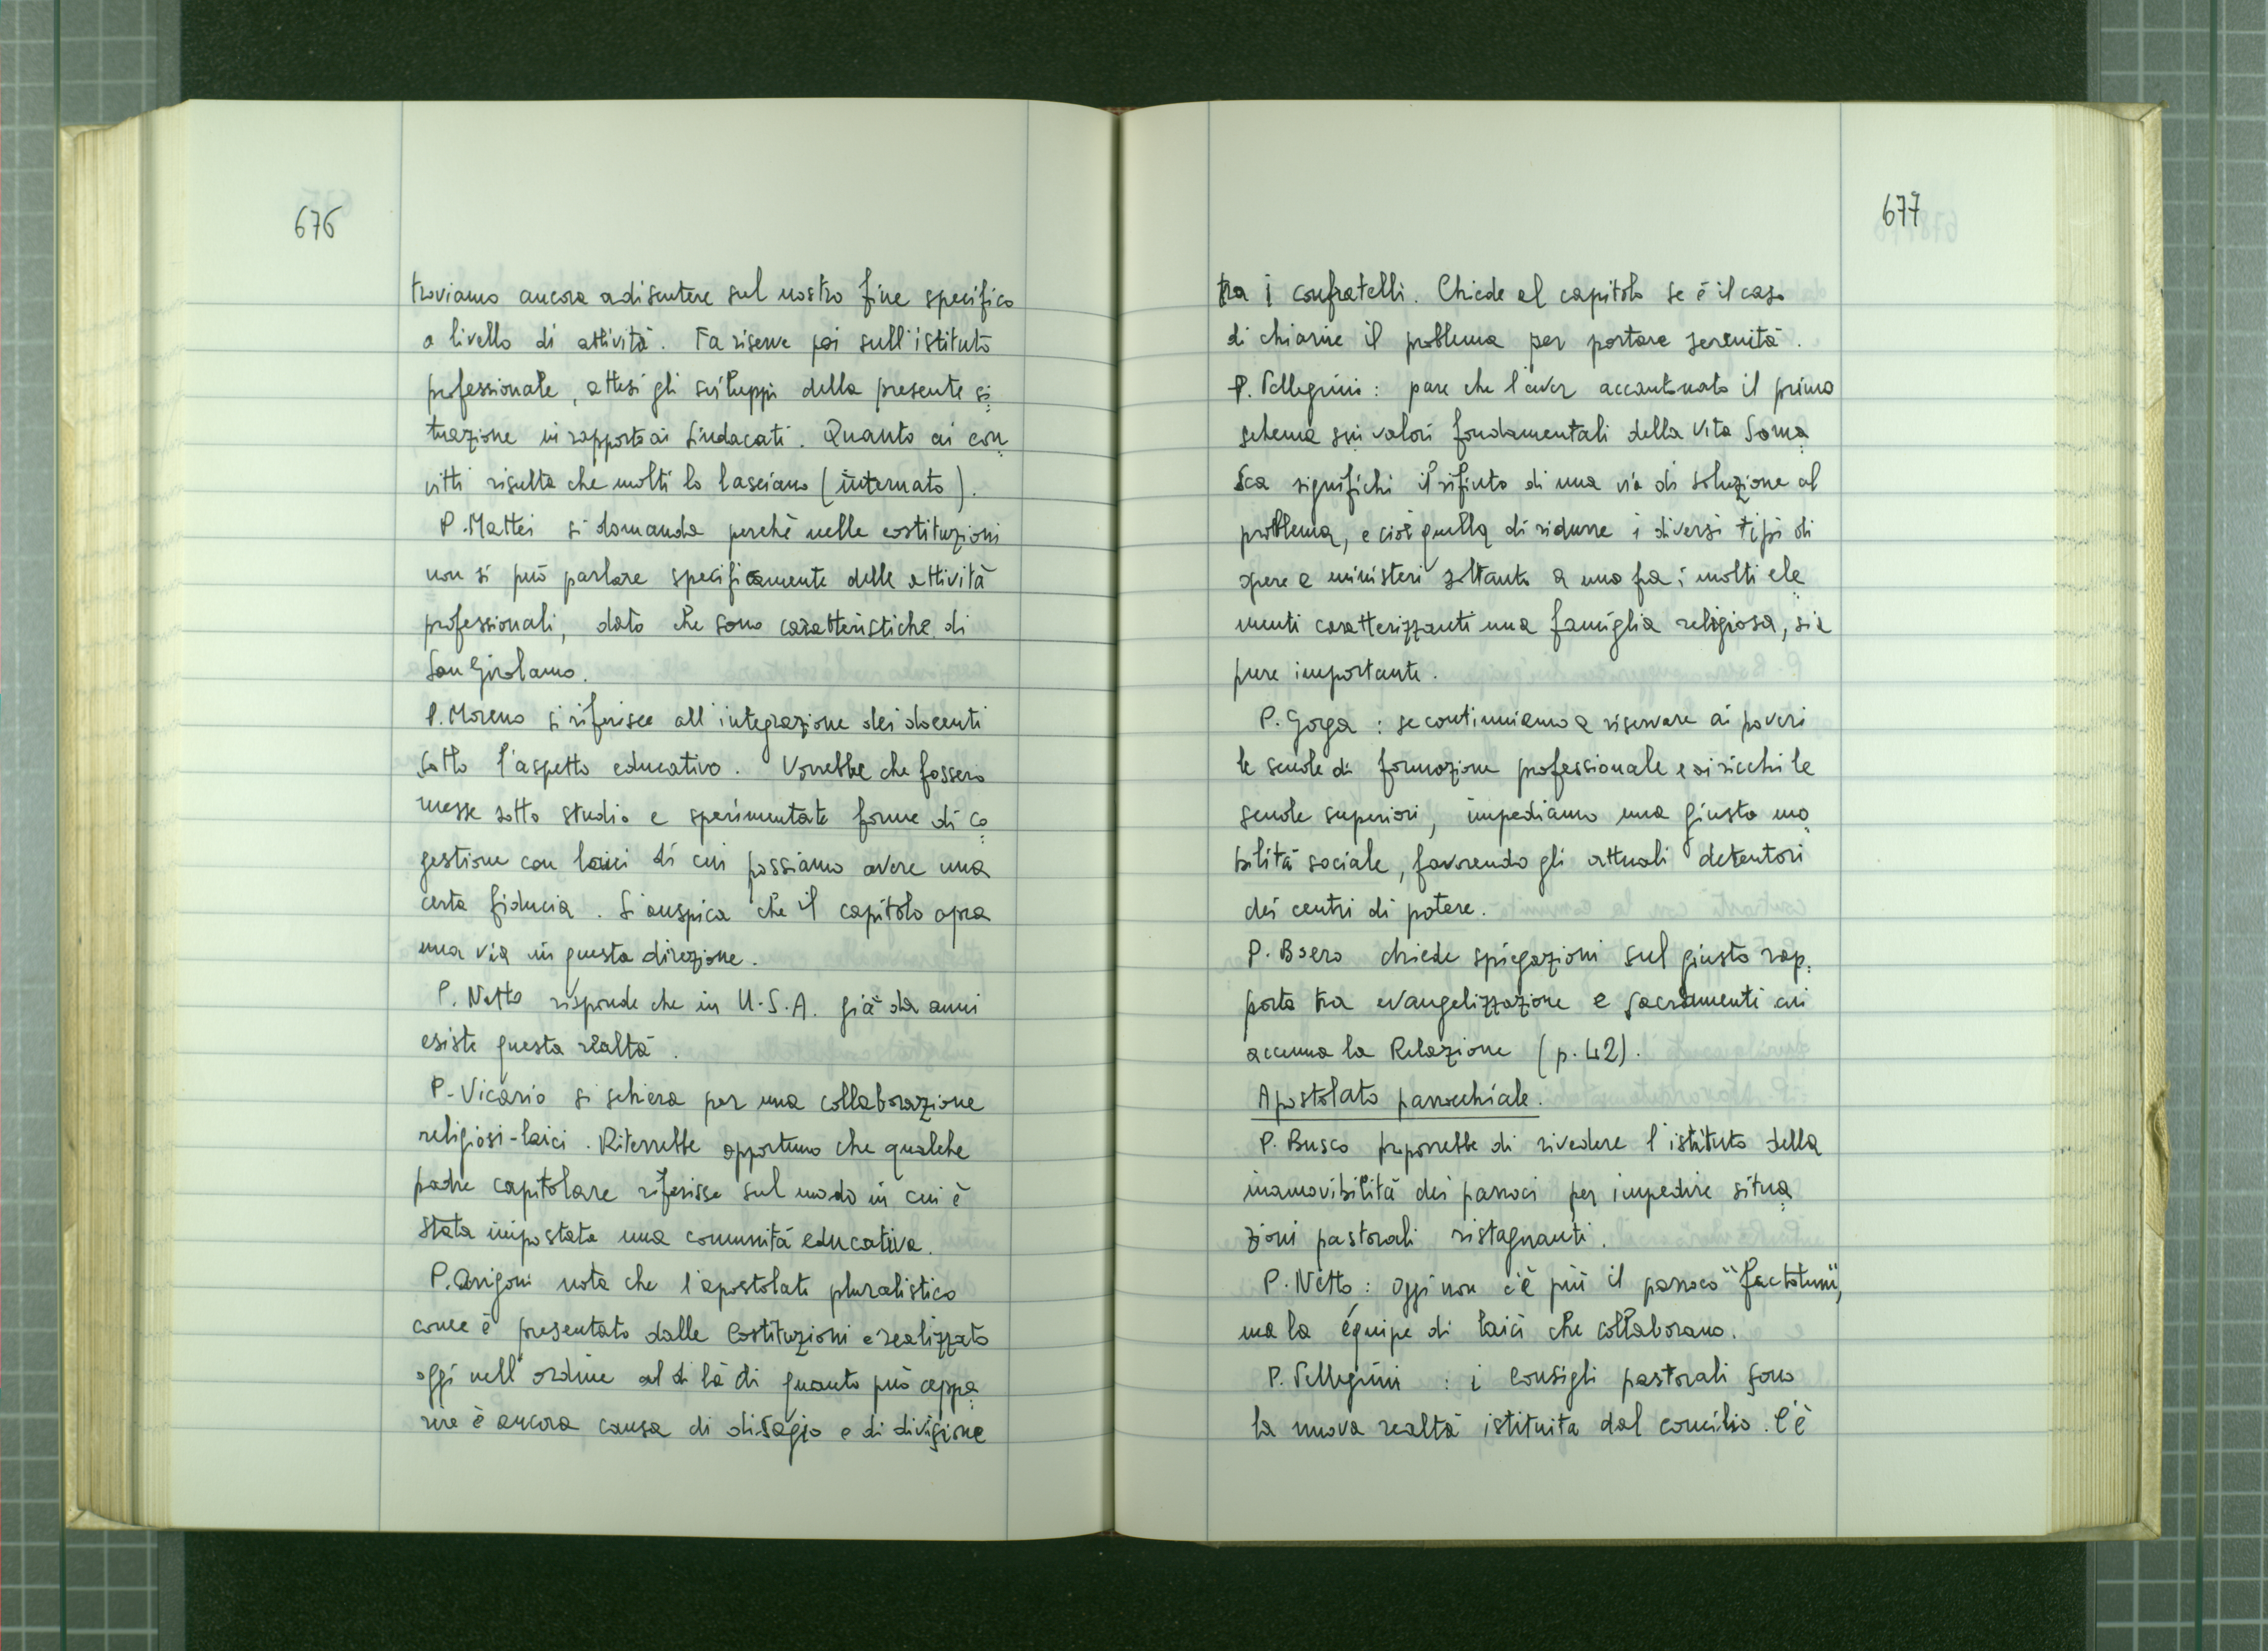 676
troviamo ancora a discutere sul nostro fine specifico
a livello di attività. Fa riserve poi sull'istituto
professionale, attesi gli sviluppi della presente si=
tuazione in rapporto ai sindacati. Quanto ai con=
vitti risulta che molti lo lasciano (internato).
P. Mattei si domanda perchè nelle costituzioni
non si può parlare specificamente delle attività
professionali, dato che sono caratteristiche di
San Girolamo.
P. Moreno si riferisce all'integrazione dei docenti
sotto l'aspetto educativo. Vorrebbe che fossero
messe sotto studio e sperimentate forme di co=
gestione con laici di cui possiamo avere una
certa fiducia. Si auspica che il capitolo apra
una via in questa direzione.
P. Netto risponde che in U.S.A. già da anni
esiste questa realtà.
P. Vicario si schiera per una collaborazione
religiosi-laici. Riterrebbe opportuno che qualche
padre capitolare riferisse sul modo in cui è
stata impostata una comunità educativa.
P. Arrigoni nota che l'apostolato pluralistico
come è presentato dalle Costituzioni e realizzato
oggi nell'ordine al di là di quanto può appa=
rire è ancora causa di disagio e di divisione
677
tra i confratelli. Chiede al capitolo se è il caso
di chiarire il problema per portare serenità.
P. Pellegrini: pare che l'aver accantonato il primo
schema sui valori fondamentali della vita Soma=
sca significhi il rifiuto di una via di soluzione al
problema, e cioè quella di ridurre i diversi tipi di
opere e ministeri soltanto a uno fra i molti ele=
menti caratterizzanti una famiglia religiosa, sia
pure importante.
P. Gorga: se continuiamo a riservare ai poveri
le scuole di formazione professionale e ai ricchi le
scuole superiori, impediamo una giusta mo=
bilità sociale, favorendo gli attuali detentori
dei centri di potere.
P. Boero chiede spiegazioni sul giusto rap=
porto tra evangelizzazione e sacramenti cui
accenna la Relazione (p. 42).
Apostolato parrocchiale.
P. Busco proporrebbe di rivedere l'istituto della
inamovibilità dei parroci per impedire situa=
zioni pastorali ristagnanti.
P. Netto: oggi non c'è più il parroco "factotum",
ma la équipe di laici che collaborano.
P. Pellegrini : i Consigli pastorali sono
la nuova realtà istituita dal concilio. C'è